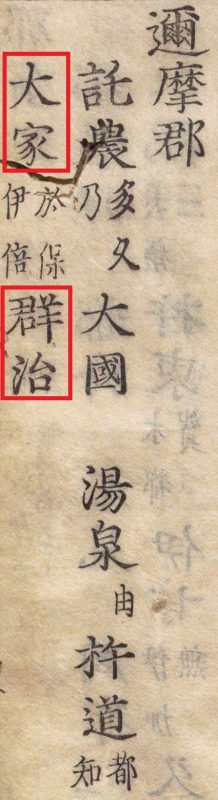 邇摩郡
託農 多久乃 大國 湯泉 由 杵道 都知
大家 於保伊倍 群治